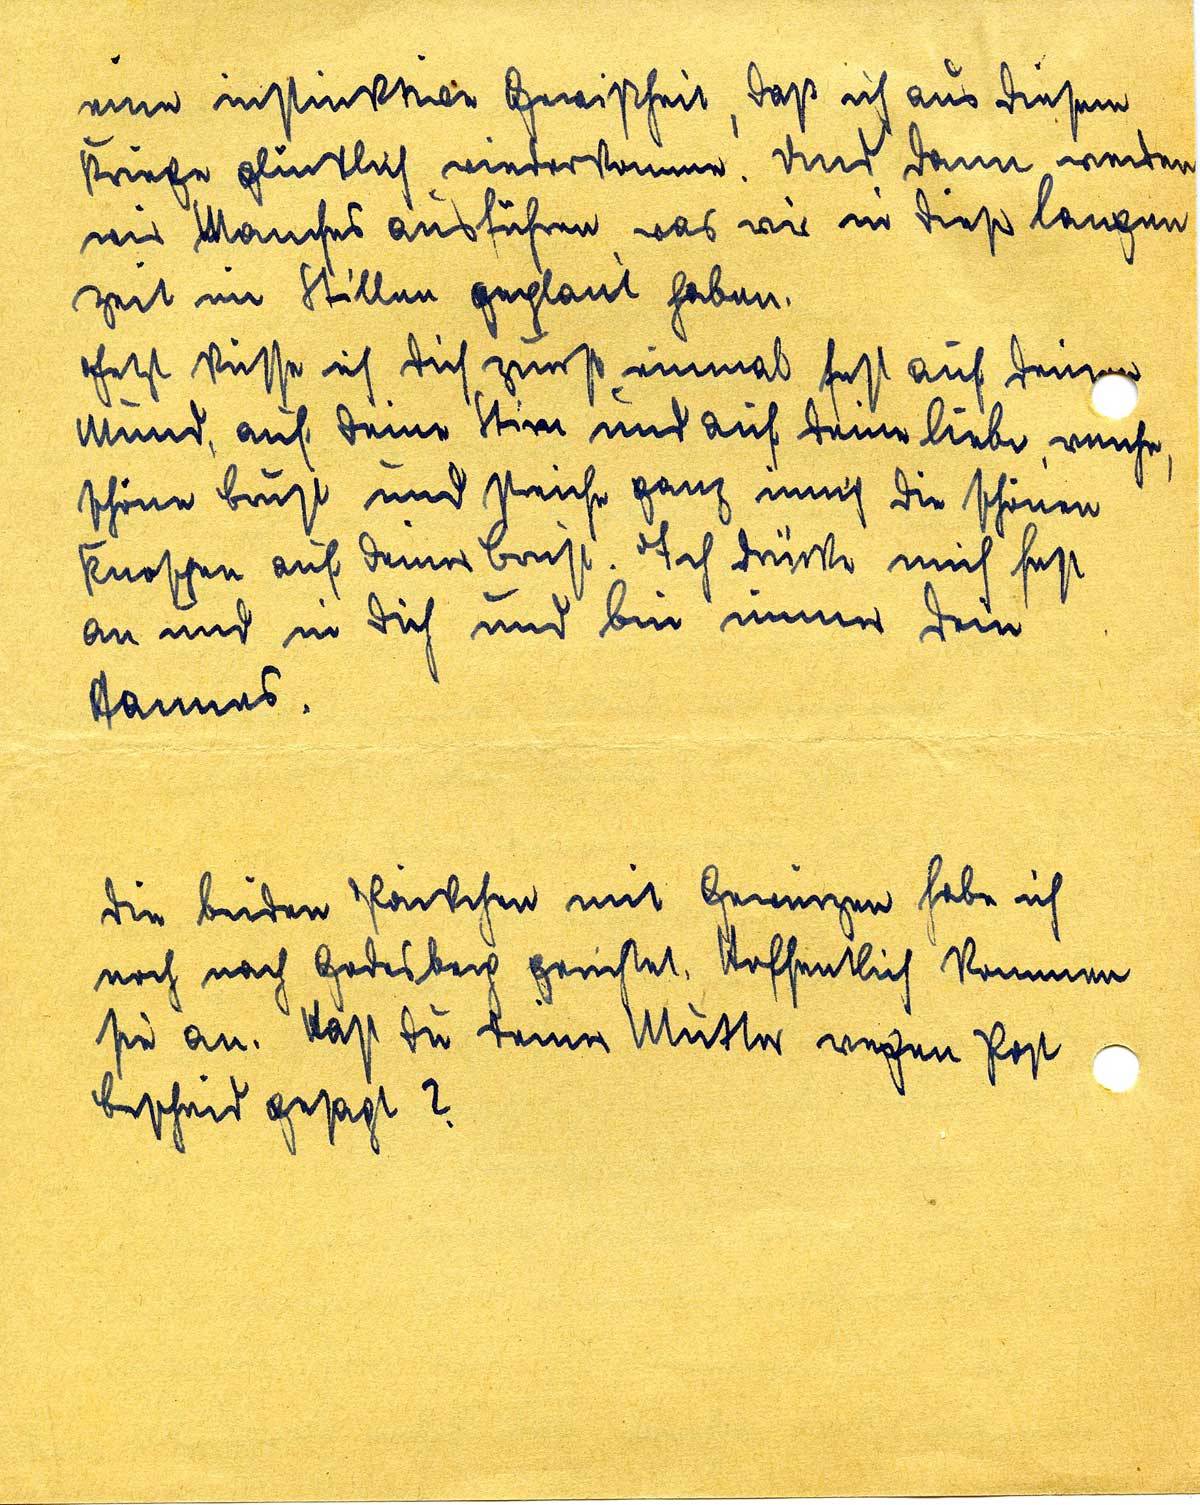 eine instinktive Gewißheit, daß ich aus diesem
Kriege glücklich wiederkomme. Und dann werden
wir Manches ausführen was wir in dieser langen
Zeit im Stillen geplant haben.
Jetzt küsse ich Dich zuerst einmal fest auf Deinen
Mund, auf Deine Stirn und auf Deine liebe, weiche,
schöne Brust und streiche ganz innig die schönen
Knospen auf Deiner Brust. Ich drücke mich fest
an und in Dich und bin immer Dein
Hannes.
Die beiden Päckchen mit Gewürzen habe ich
noch nach Godesberg gerichtet. Hoffentlich kommen
sie an. Hast Du Deiner Mutter wegen Post
bescheid gesagt?